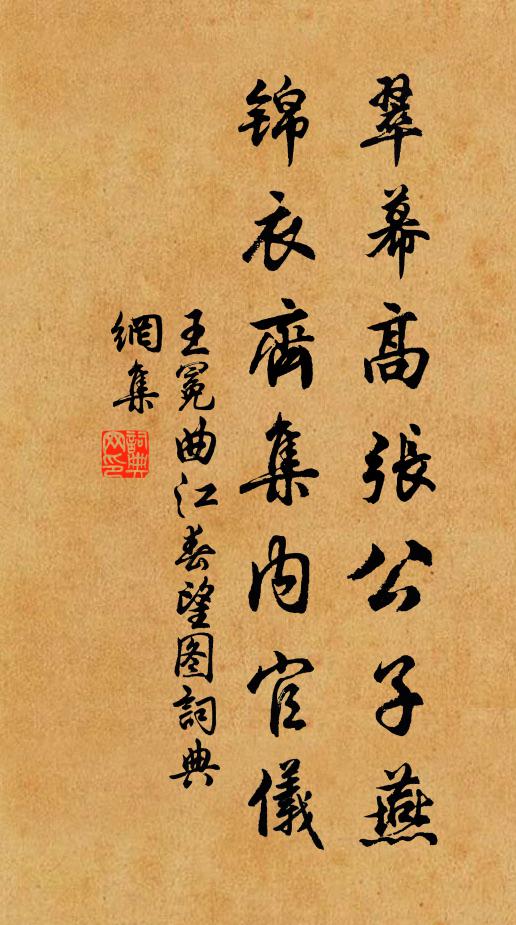 翠幕高張公子燕
锦衣齊集内官儀
王冕曲江春望图詞典
網集
詞典
网印